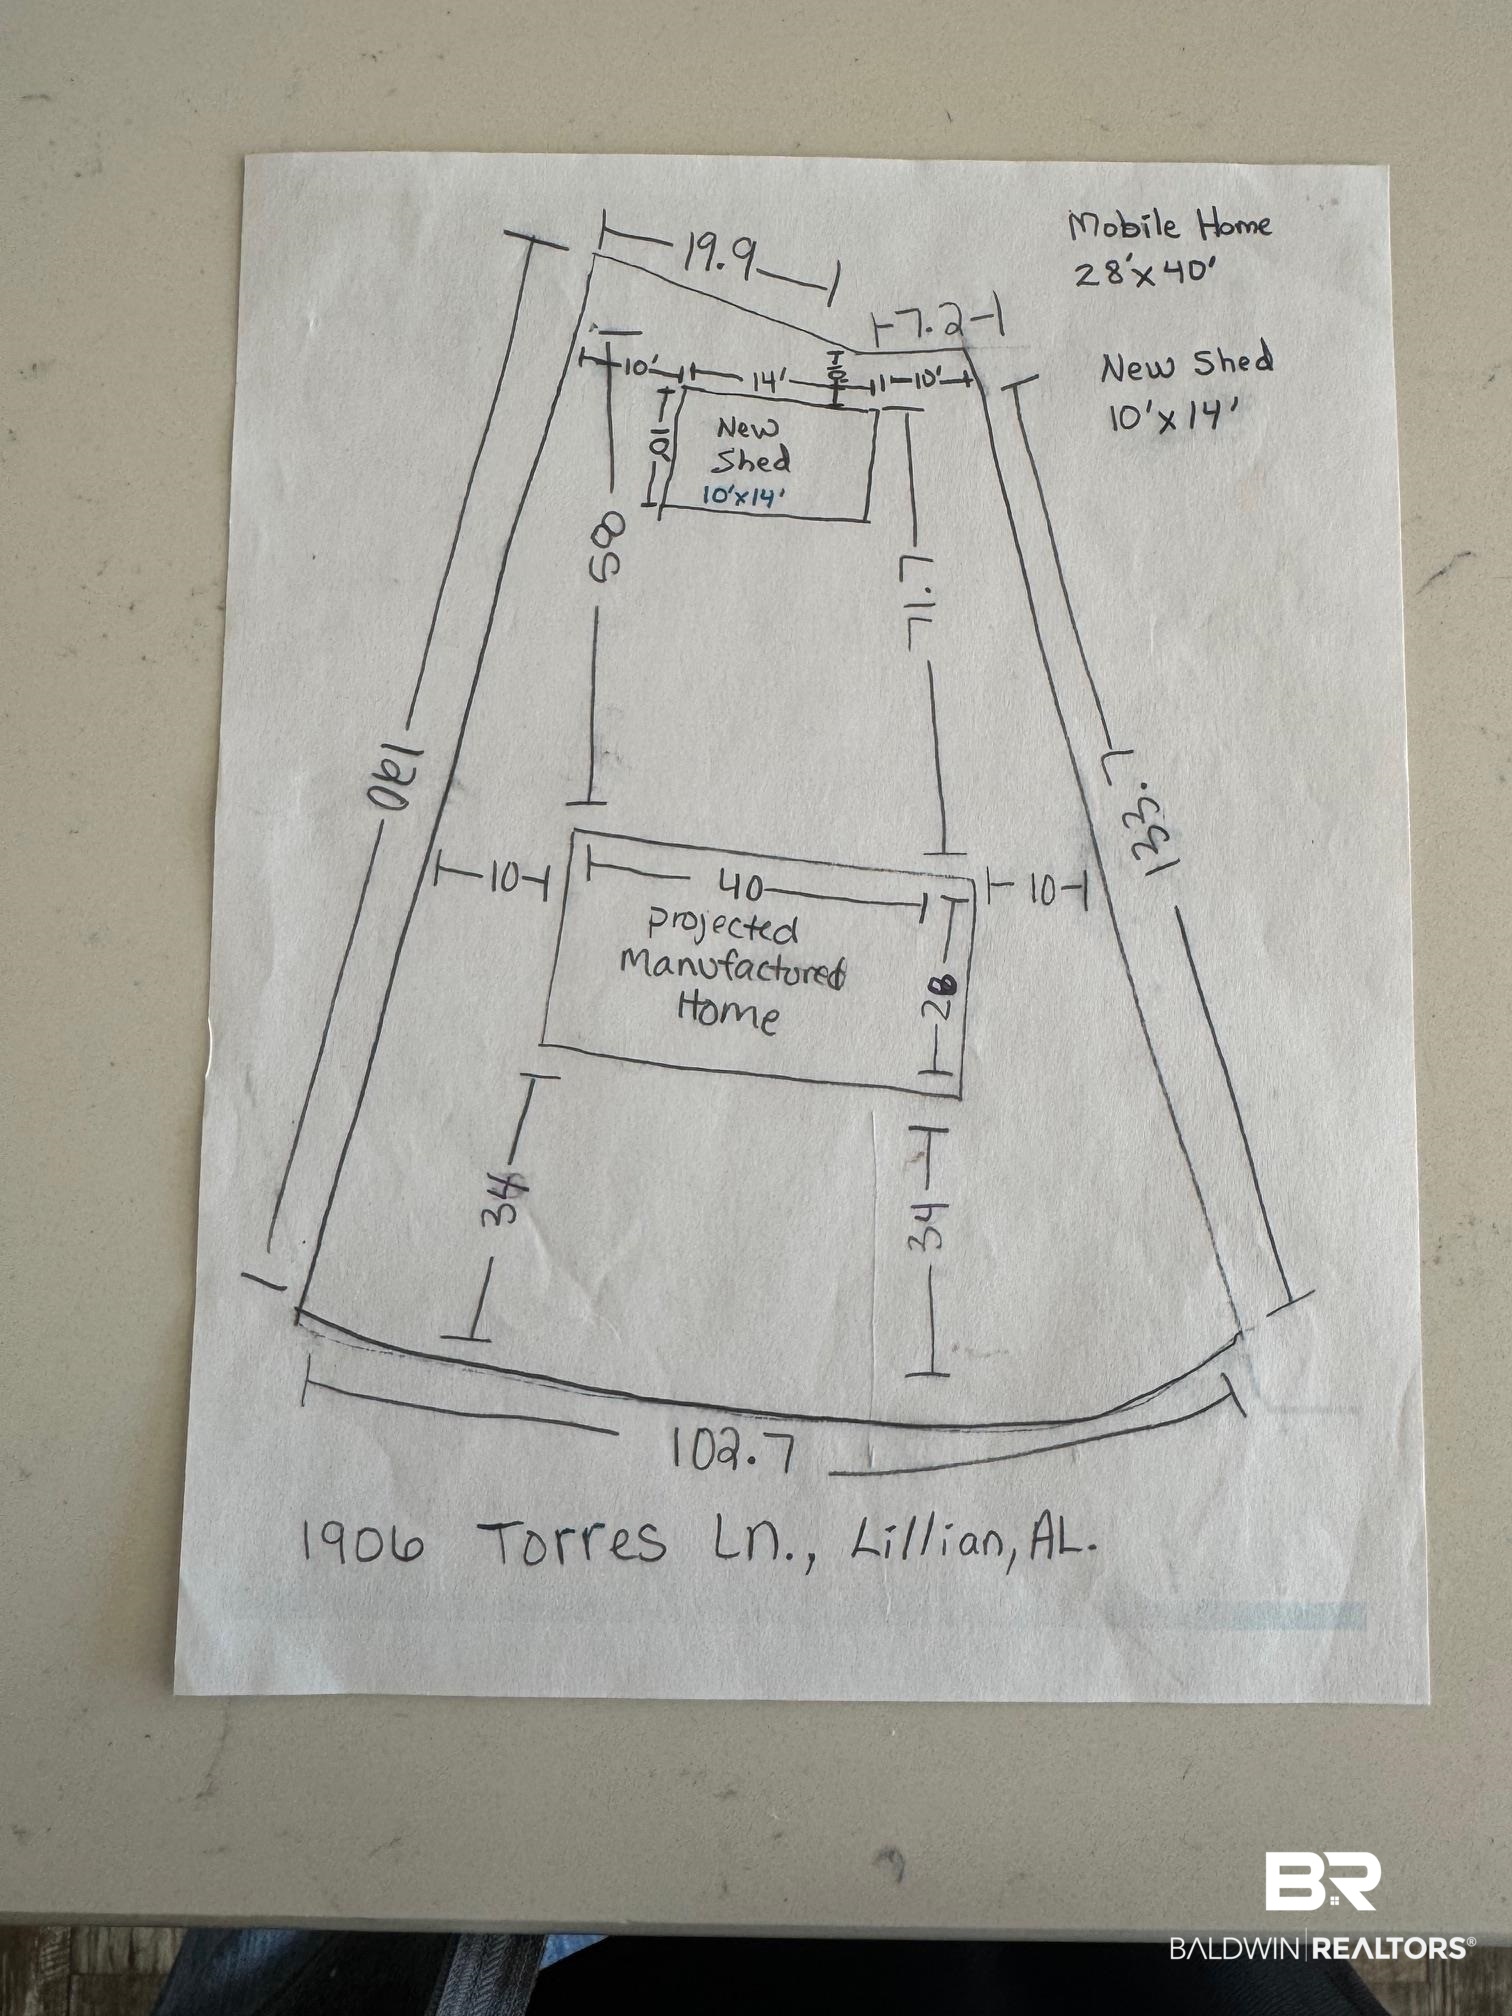 Mobile Home
28'x40'
19.9
7.2
10'
14'
10'
10'
New Shed
10'x14'
New
Shed
10'x14'
10'
58
71.7
120
133.7
10
40
10
Projected
Manufactured
Home
28
34
34
102.7
1906 Torres Ln., Lillian, AL.
BR
BALDWIN REALTORS®